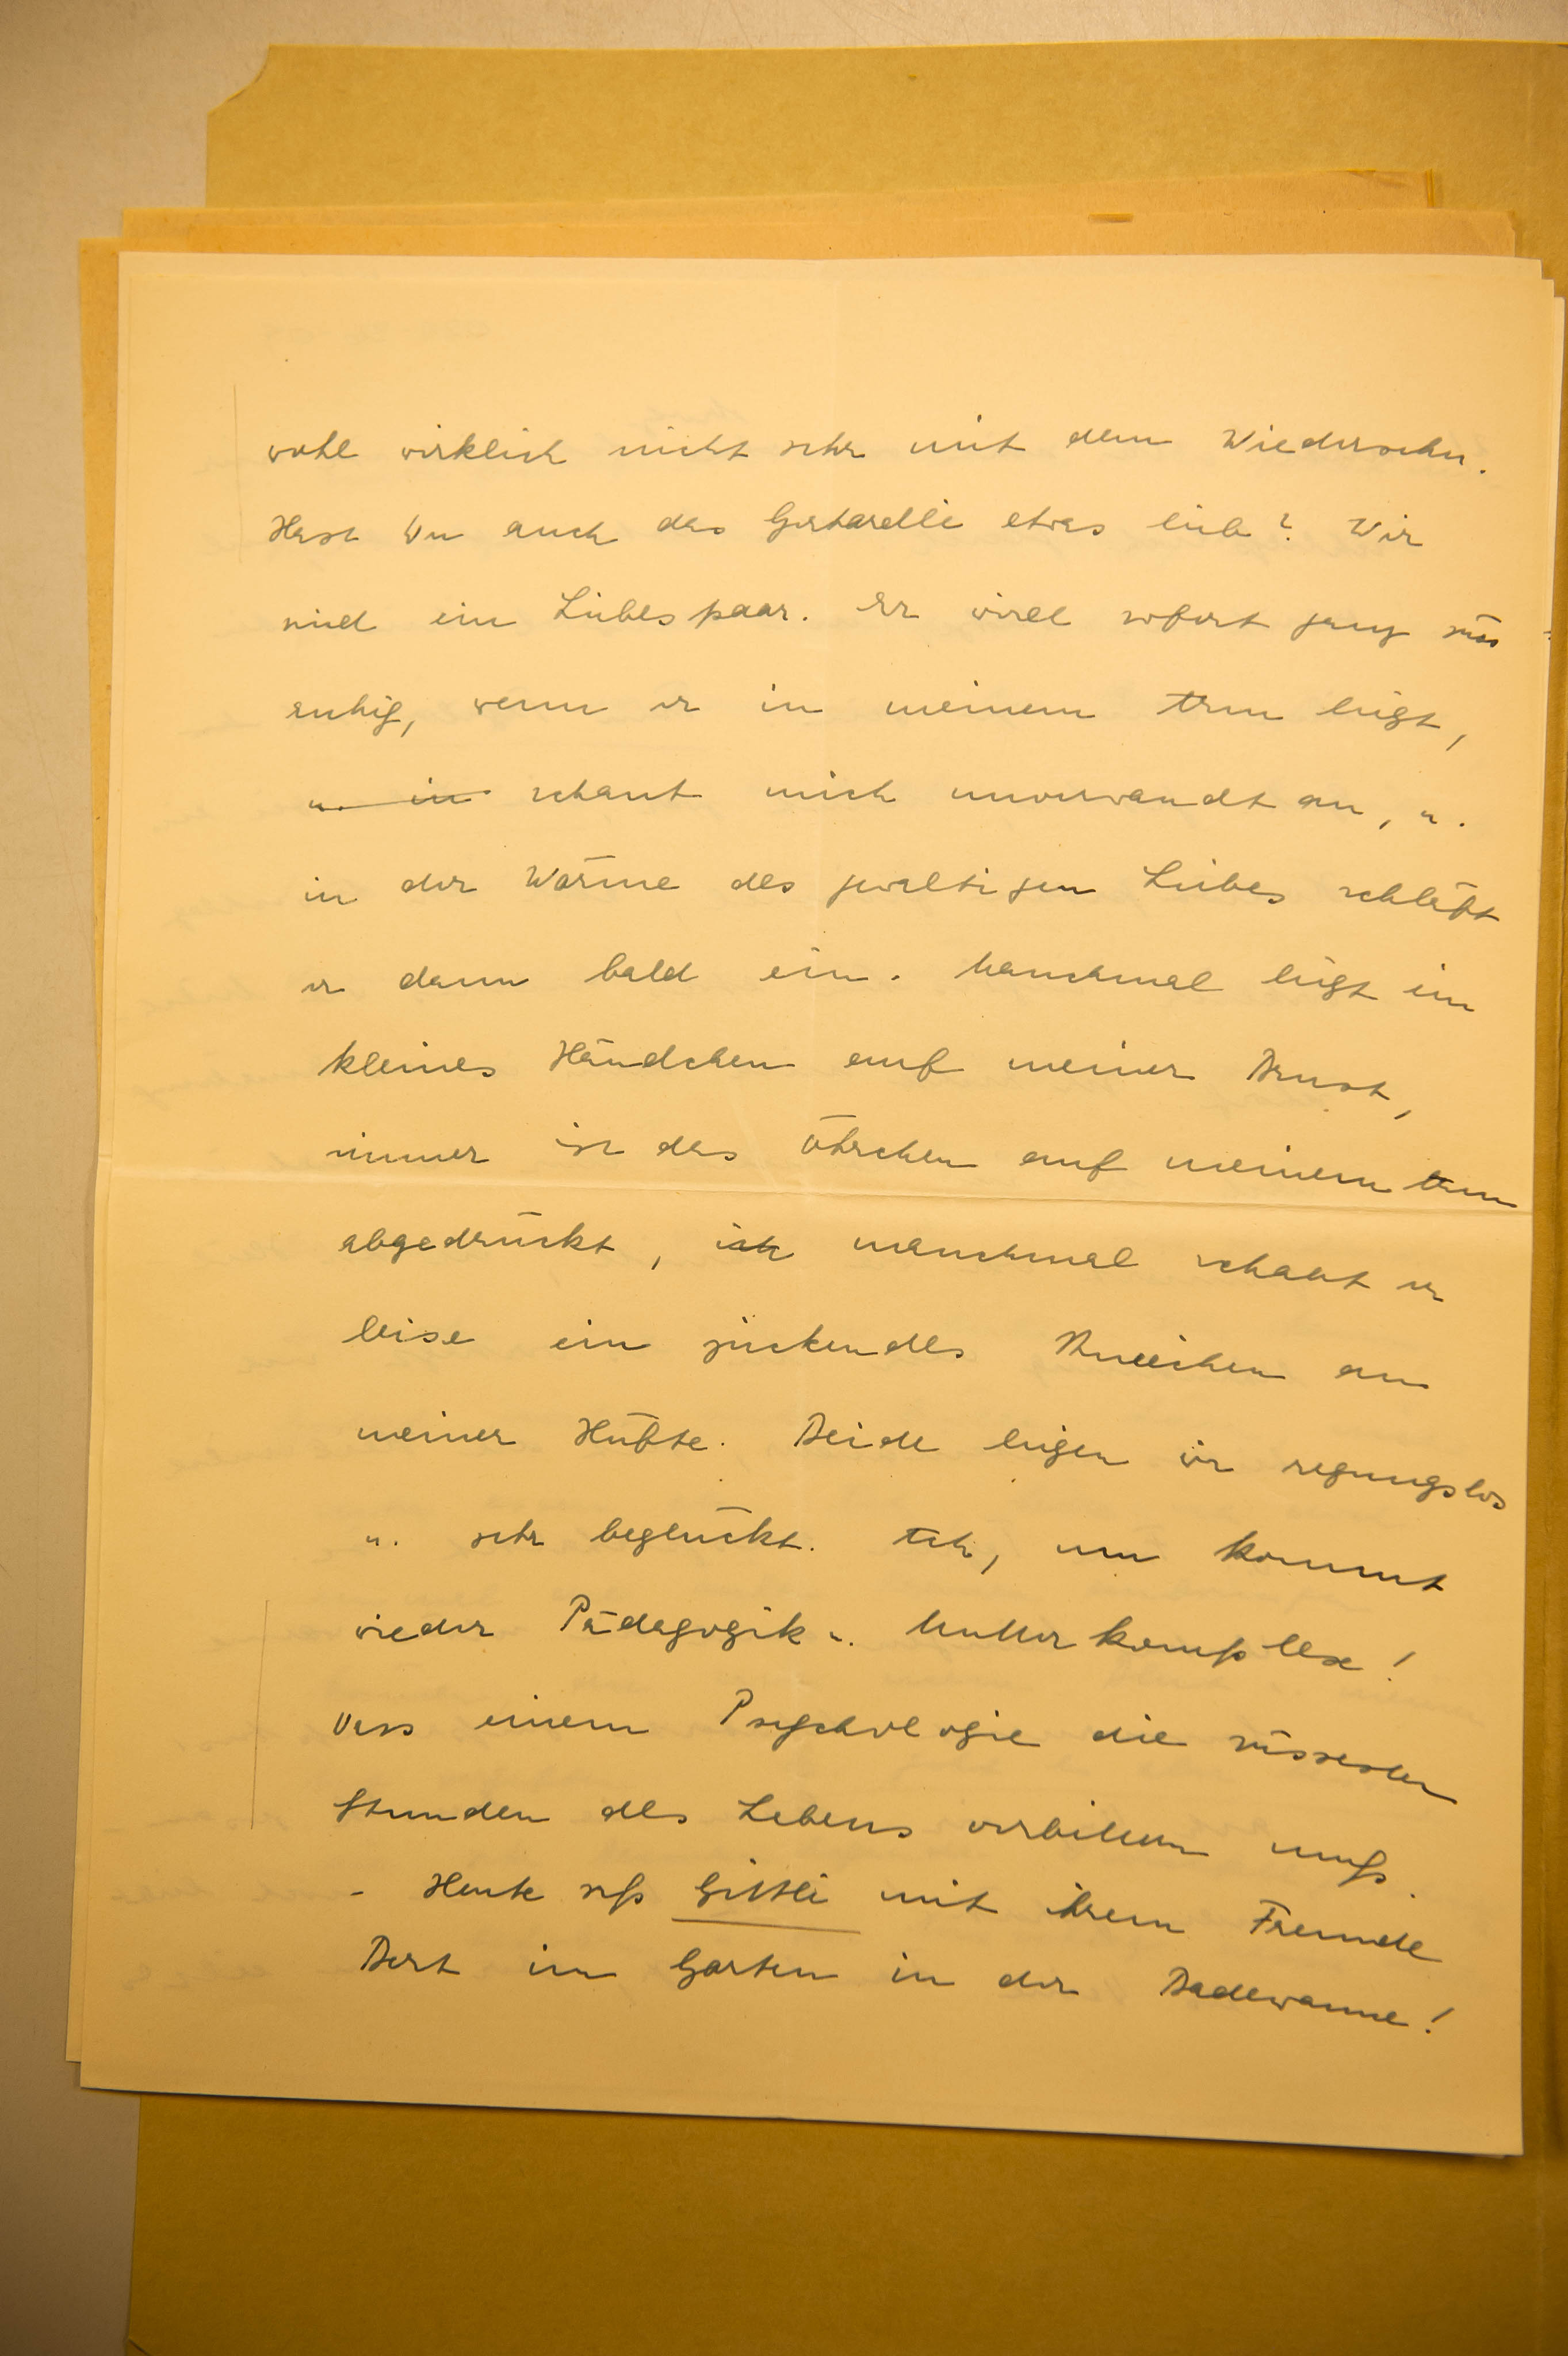 wohl wirklich nicht sehr mit dem Wiedersehn.
Hast Du auch das Gertarelli etwas lieb? Wir
sind ein Liebespaar. Er wird sofort ganz süss
ruhig, wenn er in meinem Arm liegt,
u. in schaut mich unverwandt an, u.
in der Wärme des gewaltigen Leibes schläft
er dann bald ein. Manchmal liegt ein
kleines Händchen auf meiner Brust,
immer ist das Öhrchen auf meinem Arm
abgedrückt, manchmal schabt er
leise ein juckendes Kneeichen an
meiner Hüfte. Beide liegen wir regungslos
u. sehr beglückt. Ach, nun kommt
wieder Pädagogik u. Mutterkomplex!
Dass einem Psychologie die süssesten
Stunden des Lebens verbittern muß.
- Heute saß Gittli mit ihrem Freunde
Bert im Garten in der Badewanne!